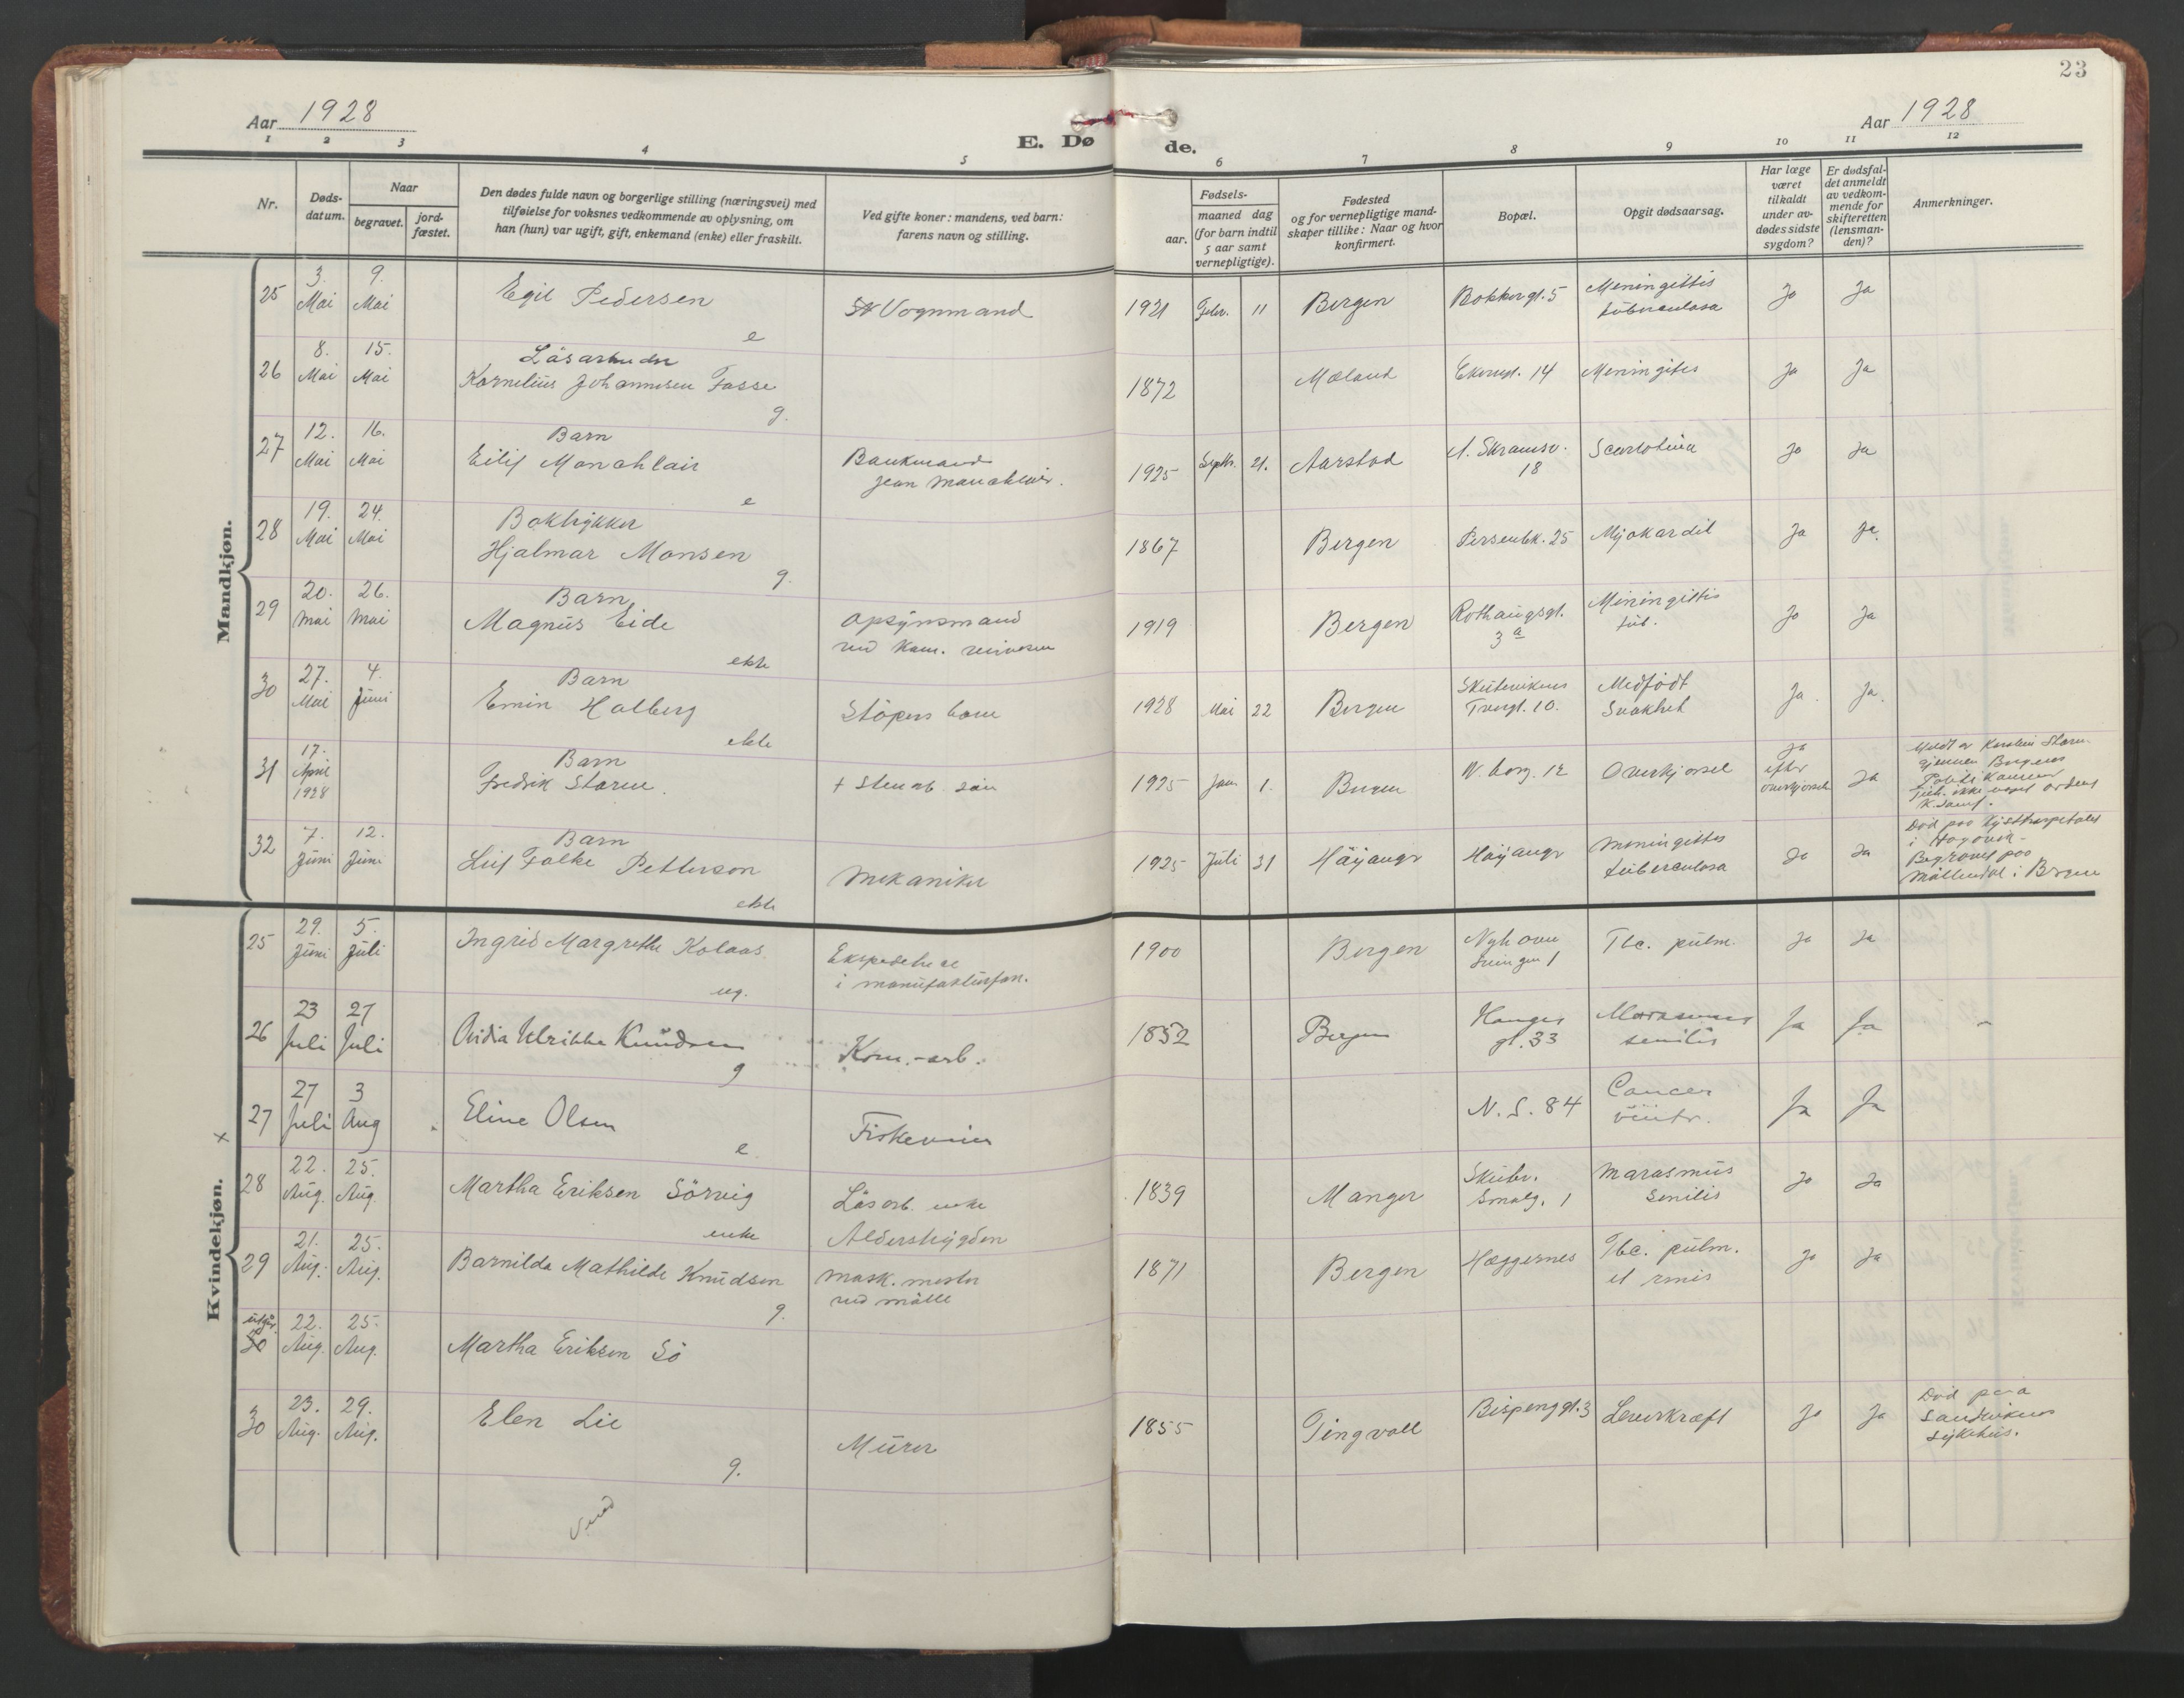 23
Aar 1928
E. Døde.
Aar 1928
1 2 3 4 5 6 7 8 9 10 11 12
Nr.
Døds-
datum.
Naar
begravet.
jord-
fæstet.
Den dødes fulde navn og borgerlige stilling (næringsvei) med
tilføielse for voksnes vedkommende av oplysning, om
han (hun) var ugift, gift, enkemand (enke) eller fraskilt.
Ved gifte koner: mandens, ved barn:
farens navn og stilling.
Fødsels-
aar.
maaned dag
(for barn indtil
5 aar samt
vernepligtige).
Fødested
og for vernepligtige mand-
skaper tillike: Naar og hvor
konfirmert.
Bopæl.
Opgit dødsaarsag.
Har læge
været
tilkaldt
under av-
dødes sidste
sygdom?
Er dødsfal-
det anmeldt
av vedkom-
mende for
skifteretten
(lensman-
den)?
Anmerkninger.
Mandkjøn.
25 3. Mai 9. Mai Egil Pedersen e Vognmand 1921 Febr. 11 Bergen Bøkkergt. 5 Meningittis tüberculosa Ja Ja
26 8. Mai 15. Mai Løsarbeider
Kornelius Johannesen Fosse g. 1872 Mæland 14 Meningitis Ja Ja
27 12. Mai 16. Mai Barn
Eilif Monchlair e Bankmand
Jean Monchlair. 1925 Septbr. 21. Aarstad A. Skramsv.
18 Scarlatina Ja Ja
28 19. Mai 24. Mai Boktrykker
Hjalmar Monsen g. 1867 Bergen Persenbk. 25 Myokardit Ja Ja.
29 20. Mai 26. Mai Barn
Magnüs Eide ekte Opsynsmand
ved Kom. renvæsen 1919 Bergen Rothaügsgt.
3 a Meningittis
tüb. Ja Ja
30 27. Mai 4. Jüni Barn
Emin Halberg ekte Støpers barn 1928 Mai 22 Bergen Skutevikens
Tvergt. 10. Medfødt
Svakhet Ja Ja.
31 17. April 1928 Barn
Fredrik Storm. + Stenarb. søn 1925 Jan 1. Bergen N. borg. 12 Overkjørsel Ja
efter
overkjørsel Ja Meldt av Storm
gjennem Bergens
Politikammer
ikke
32 7. Jüni 12. Jüni Barn
Leif Folke Petterson ekte Mekaniker 1925 Jüli 31 Høyangr Høyangr Meningittes
tüberculosa Ja Ja Død paa Kysthospitalet
i Hagavik -
Begravet paa
Møllendal i Bergen
Kvindekjøn.
25 29. Jüni 5. Jüli Ingrid Margrethe Kolaas. ug. Ekspeditrise
i manufakturforr. 1900 Bergen Nyhavn
Svingen 1 Tbc. pülm. Ja Ja
26 23 Juli 27 Juli Ovidia Ulrikke Knüdsen g Kom.-arb. 1852 Bergen Hanges
gt. 33 Marasmus
senilis Ja Ja
x 27 27 Juli 3 Aug Eline Olsen e N. S. 84 Cancer
ventr. Ja Ja
28 22. Aüg. 25. Aüg. Martha Eriksen Sörvig enke Løsarb. enke
Alderstrygden 1839 Manger Skütev.
Smalg. 1 Marasmüs
Senilis Ja Ja
29 21. Aüg. 25. Aüg. Barnilda Mathilde Knüdsen g. Mask. mester
ved mølle 1871 Bergen Hæggernes Tbc. pülm.
et renis Ja Ja
utgår
30 22. Aug. 25. Aug. Martha Eriksen Sö
30 23. Aüg. 29. Aüg. Elen Lie g. Mürer 1855 Tingvoll Bispenggt. 3 Leverkræft Ja Ja Død paa
Sandvikens
sykehüs.
Vend